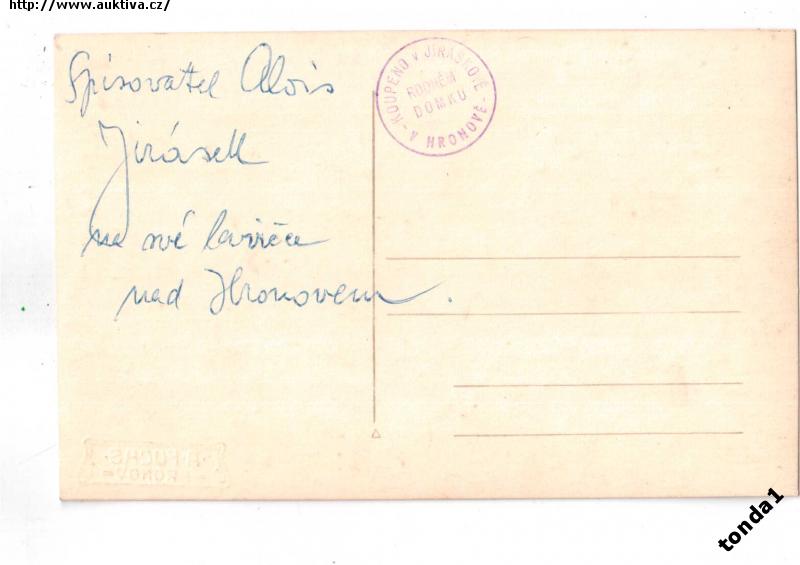 http://www.auktiva.cz/
Spisovatel Alois
Jirásek
na své lavičce
nad Hronovem.
KOUPENO V JIRÁSKOVĚ
RODNÉM
DOMKU
V HRONOVĚ
FUCHS
tonda1